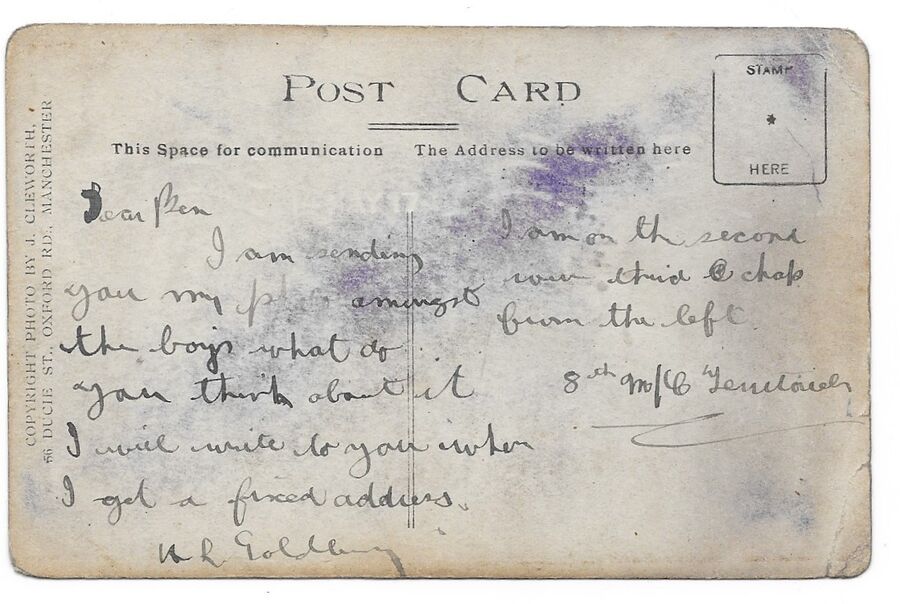 POST CARD
STAMP
*
HERE
This Space for communication
The Address to be written here
COPYRIGHT PHOTO BY J. CLEWORTH,
56 DUCIE ST., OXFORD RD., MANCHESTER
Dear Ben
I am sending
you my amungst
the boys what do
you think about it
I will write to you when
I get a fixed address.
H L Goldberg
I am on the second
row third chap
from the left
8th M/C Territorials